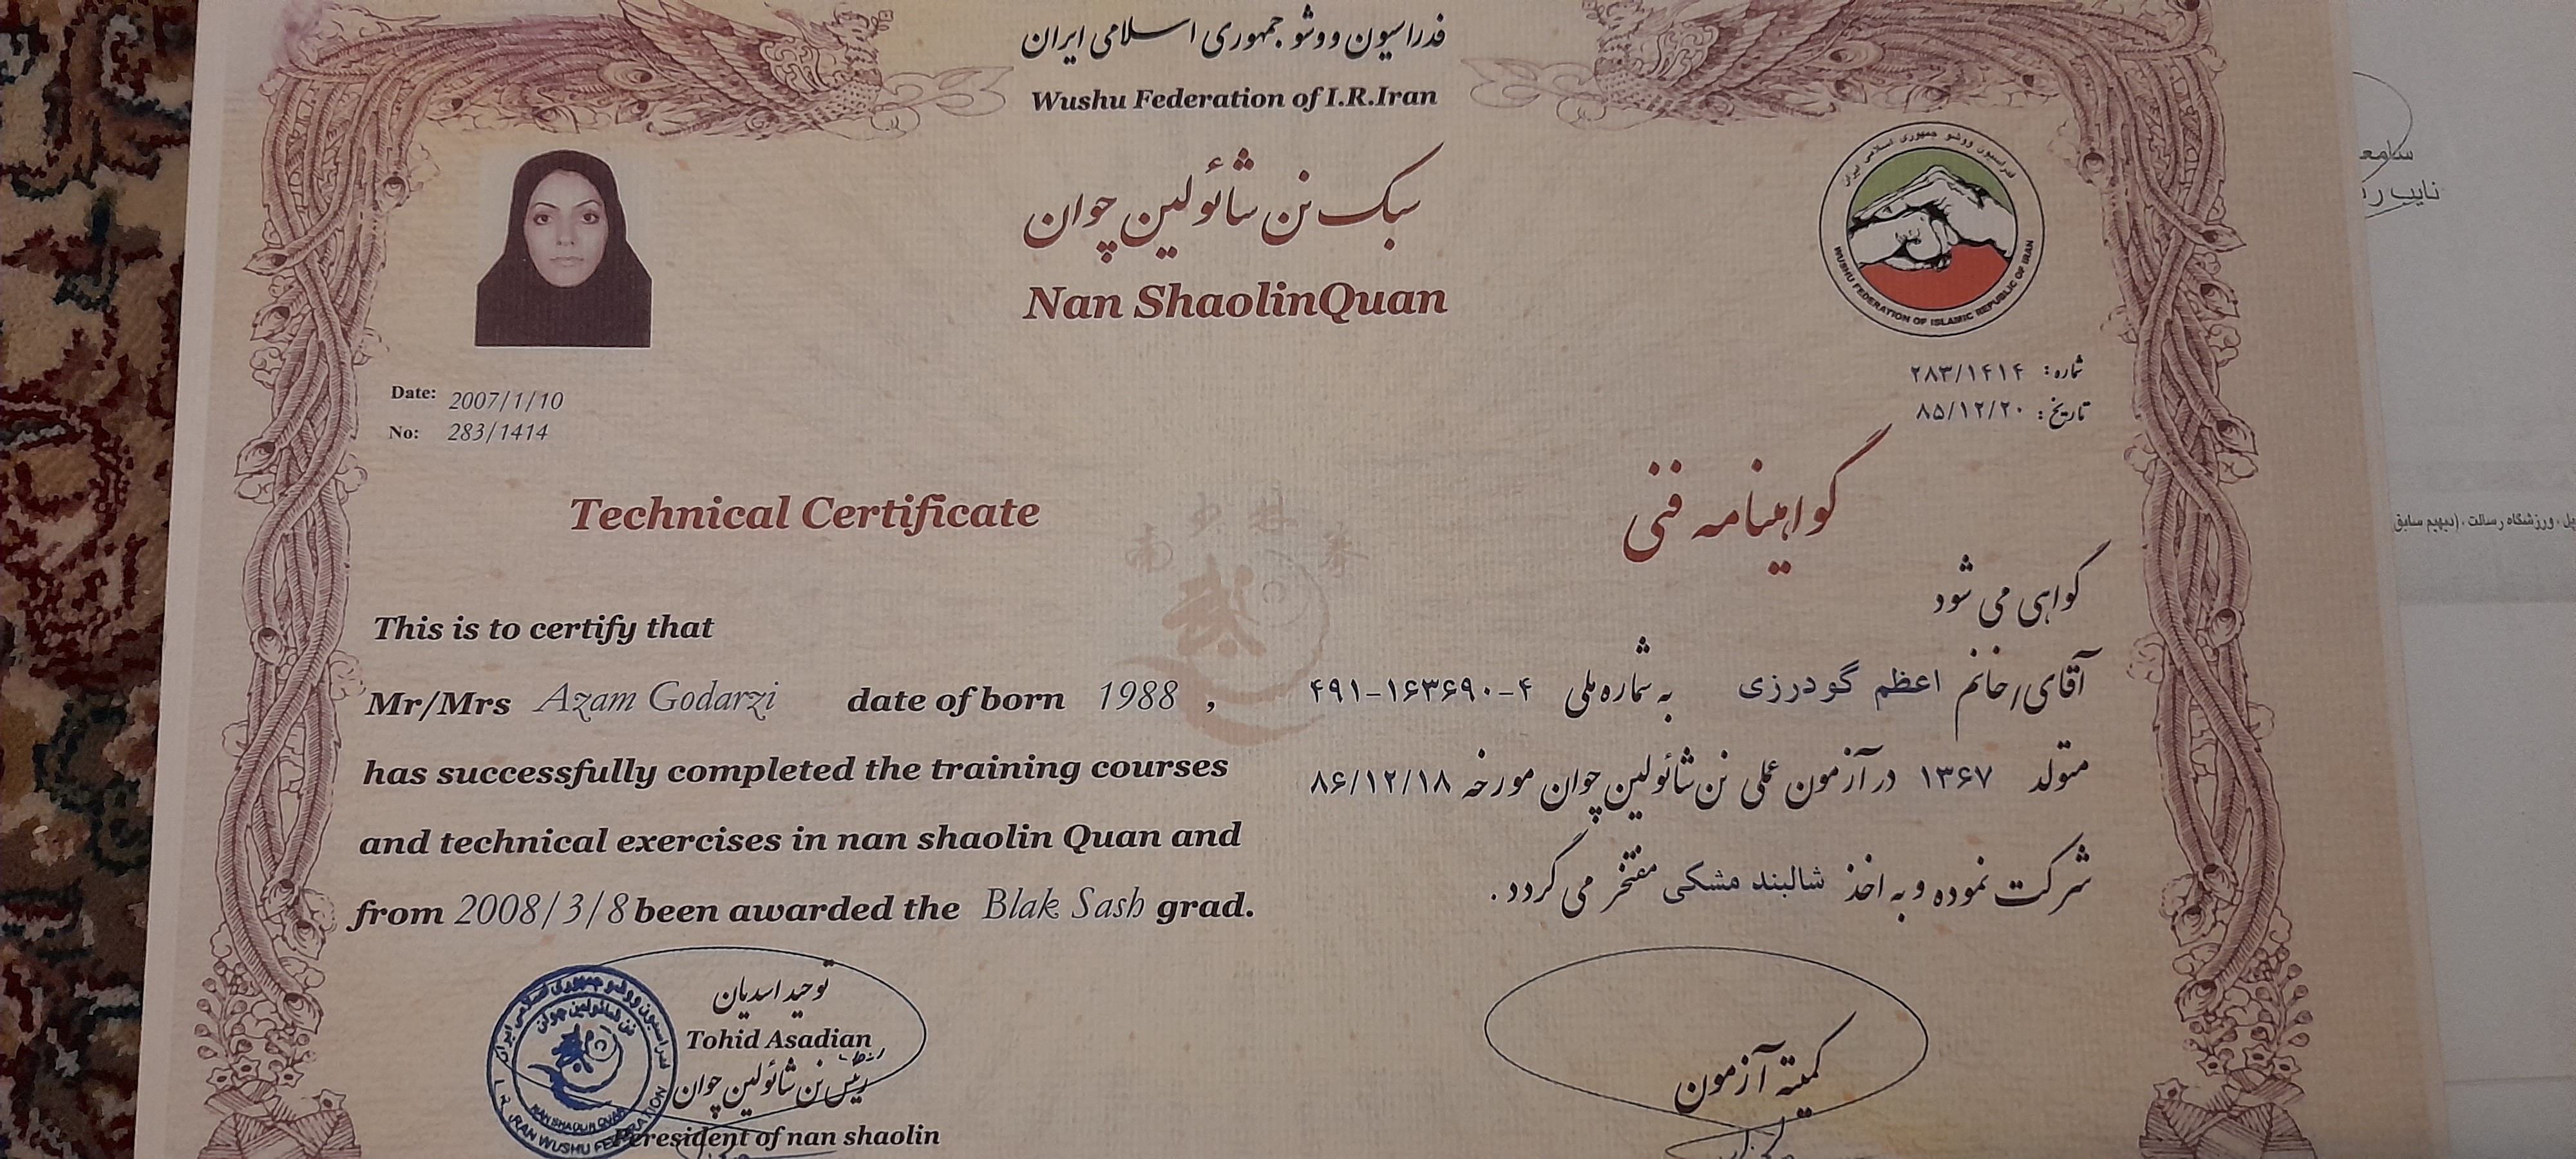 فدراسیون ووشو جمهوری اسلامی ایران
Wushu Federation of I.R.Iran
سبک نن شائولین چوان
Nan ShaolinQuan
فدراسیون ووشو جمهوری اسلامی ایران
WUSHU FEDERATION OF ISLAMIC REPUBLIC OF IRAN
شماره: ۲۸۳/۱۴۱۴
تاریخ: ۸۵/۱۲/۲۰
Date: 2007/1/10
No: 283/1414
Technical Certificate
This is to certify that
Mr/Mrs Azam Godarzi date of born 1988 ,
has successfully completed the training courses
and technical exercises in nan shaolin Quan and
from 2008/3/8 been awarded the Blak Sash grad.
گواهینامه فنی
گواهی می شود
آقای/خانم اعظم گودرزی به شماره ملی ۴۹۱-۱۶۳۶۹۰-۴
متولد ۱۳۶۷ در آزمون عملی نن شائولین چوان مورخه ۸۶/۱۲/۱۸
شرکت نموده و به اخذ شالبند مشکی مفتخر می گردد.
南少林拳
توحید اسدیان
Tohid Asadian
رئیس نن شائولین چوان
Peresident of nan shaolin
فدراسیون ووشو جمهوری اسلامی ایران
نن شائولین چوان
NAN SHAOLIN QUAN
I.R. IRAN WUSHU FEDERATION
کمیته آزمون
نایب
ورزشگاه رسالت ، (دیهیم سابق